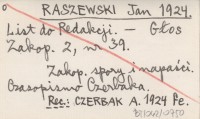 RASZEWSKI Jan 1924.
List do Redakcji. — Głos
Zakop. 2, nr 39.
Zakop. spory i napaści.
Czasopismo Czerbaka.
Rec.: CZERBAK A. 1924 Pc.